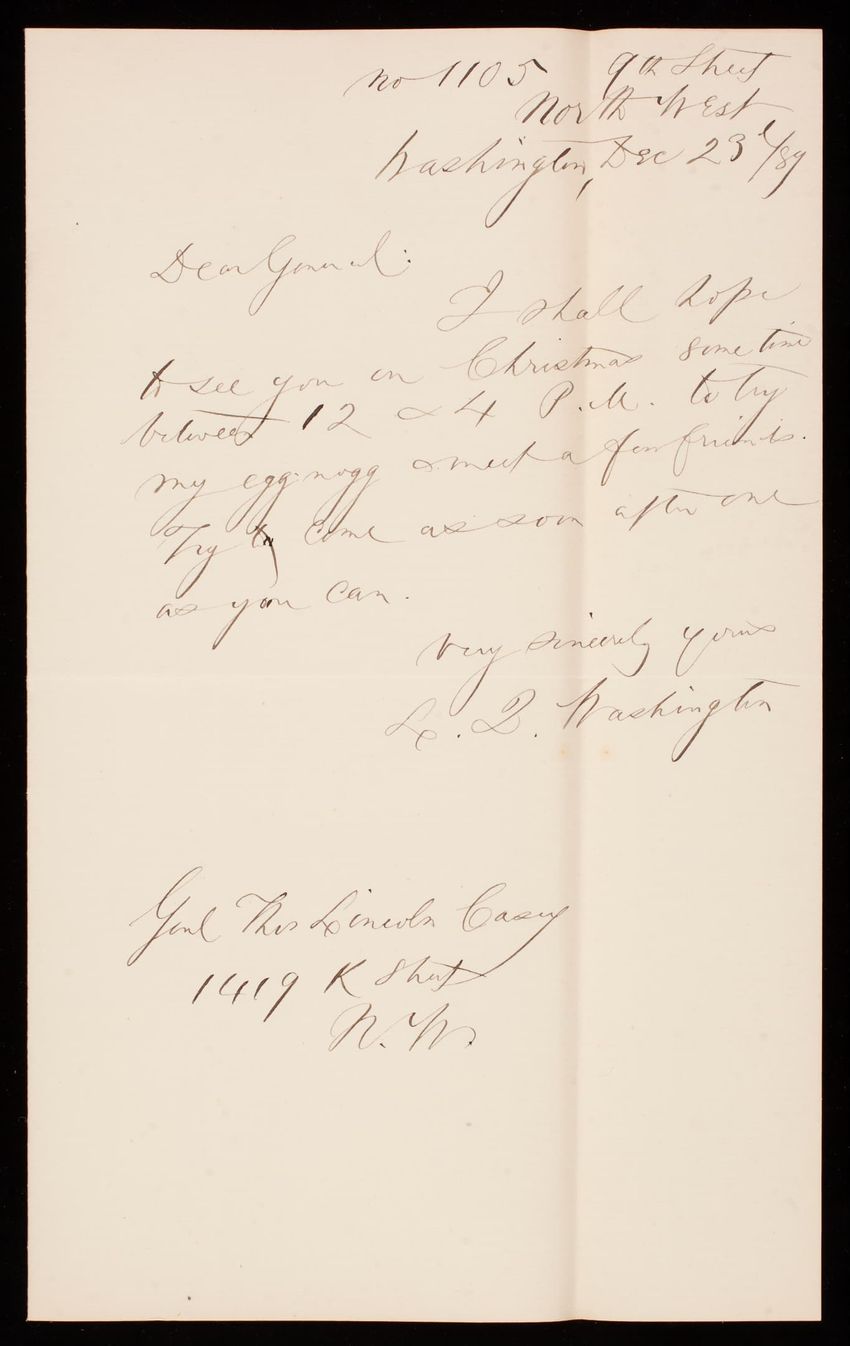 No 1105 9th Street
North West
Washington, Dec 23 /89
Dear General:
I shall hope
to see you on Christmas sometime
between 12 & 4 P.M. to try
my egg-nogg & meet a few friends.
Try to come as soon after one
as you can.
Very sincerely yours
L. Q. Washington
Genl Thos Lincoln Casey
1419 K Street
N.W.